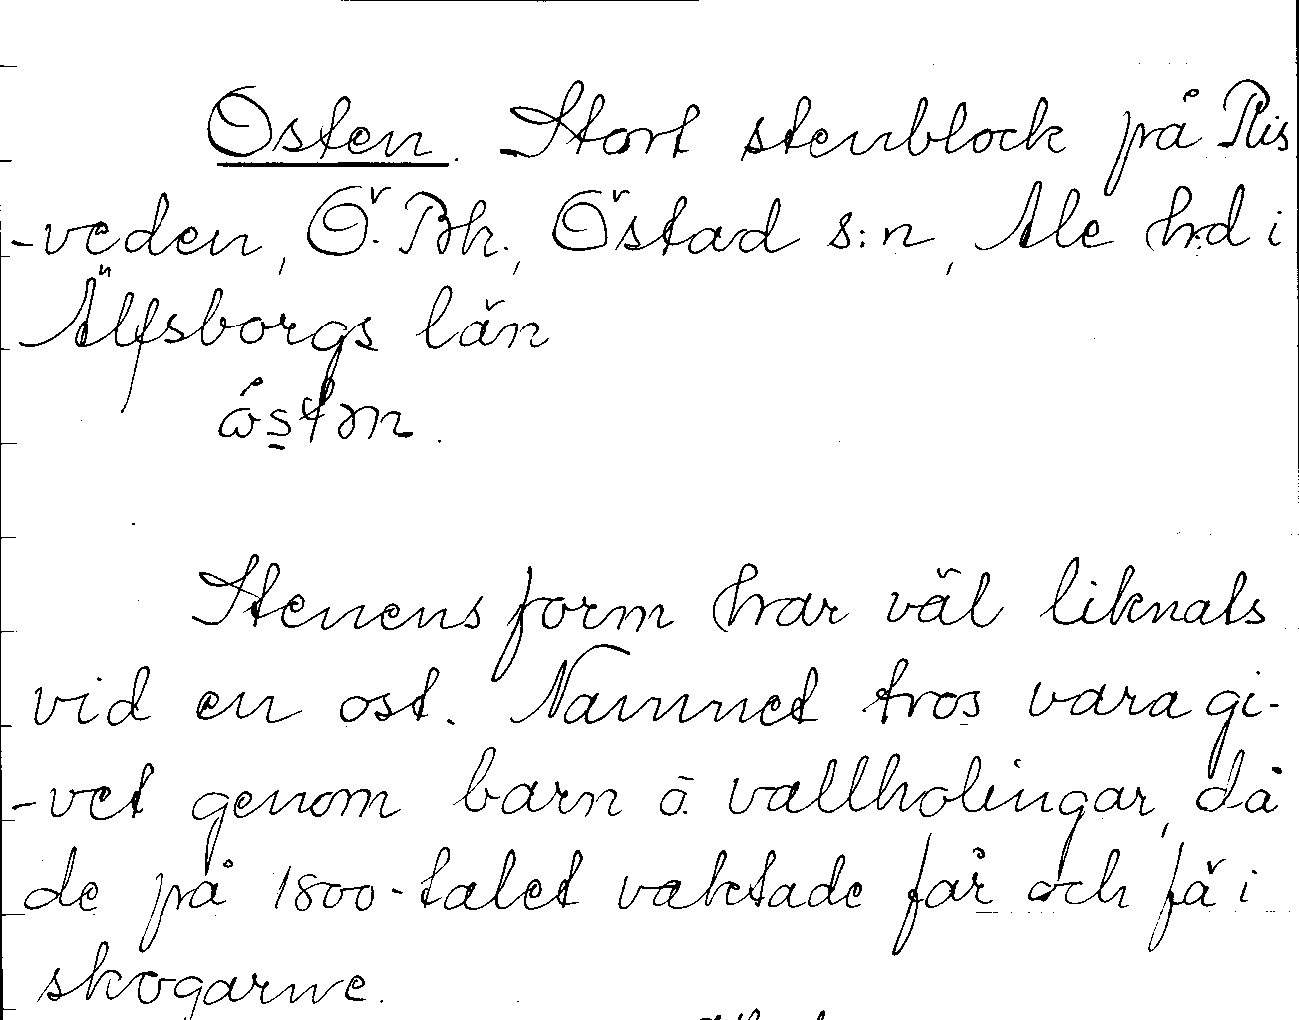 Osten. Stort stenblock på Ris
-veden, Ö. Bh., Östad s:n, Ale hd i
Älfsborgs län
Stenens form har väl liknats
vid en ost. Namnet tros vara gi-
-vet genom barn o. vallholingar, då
de på 1800-talet vaktade får och fä i
skogarne.